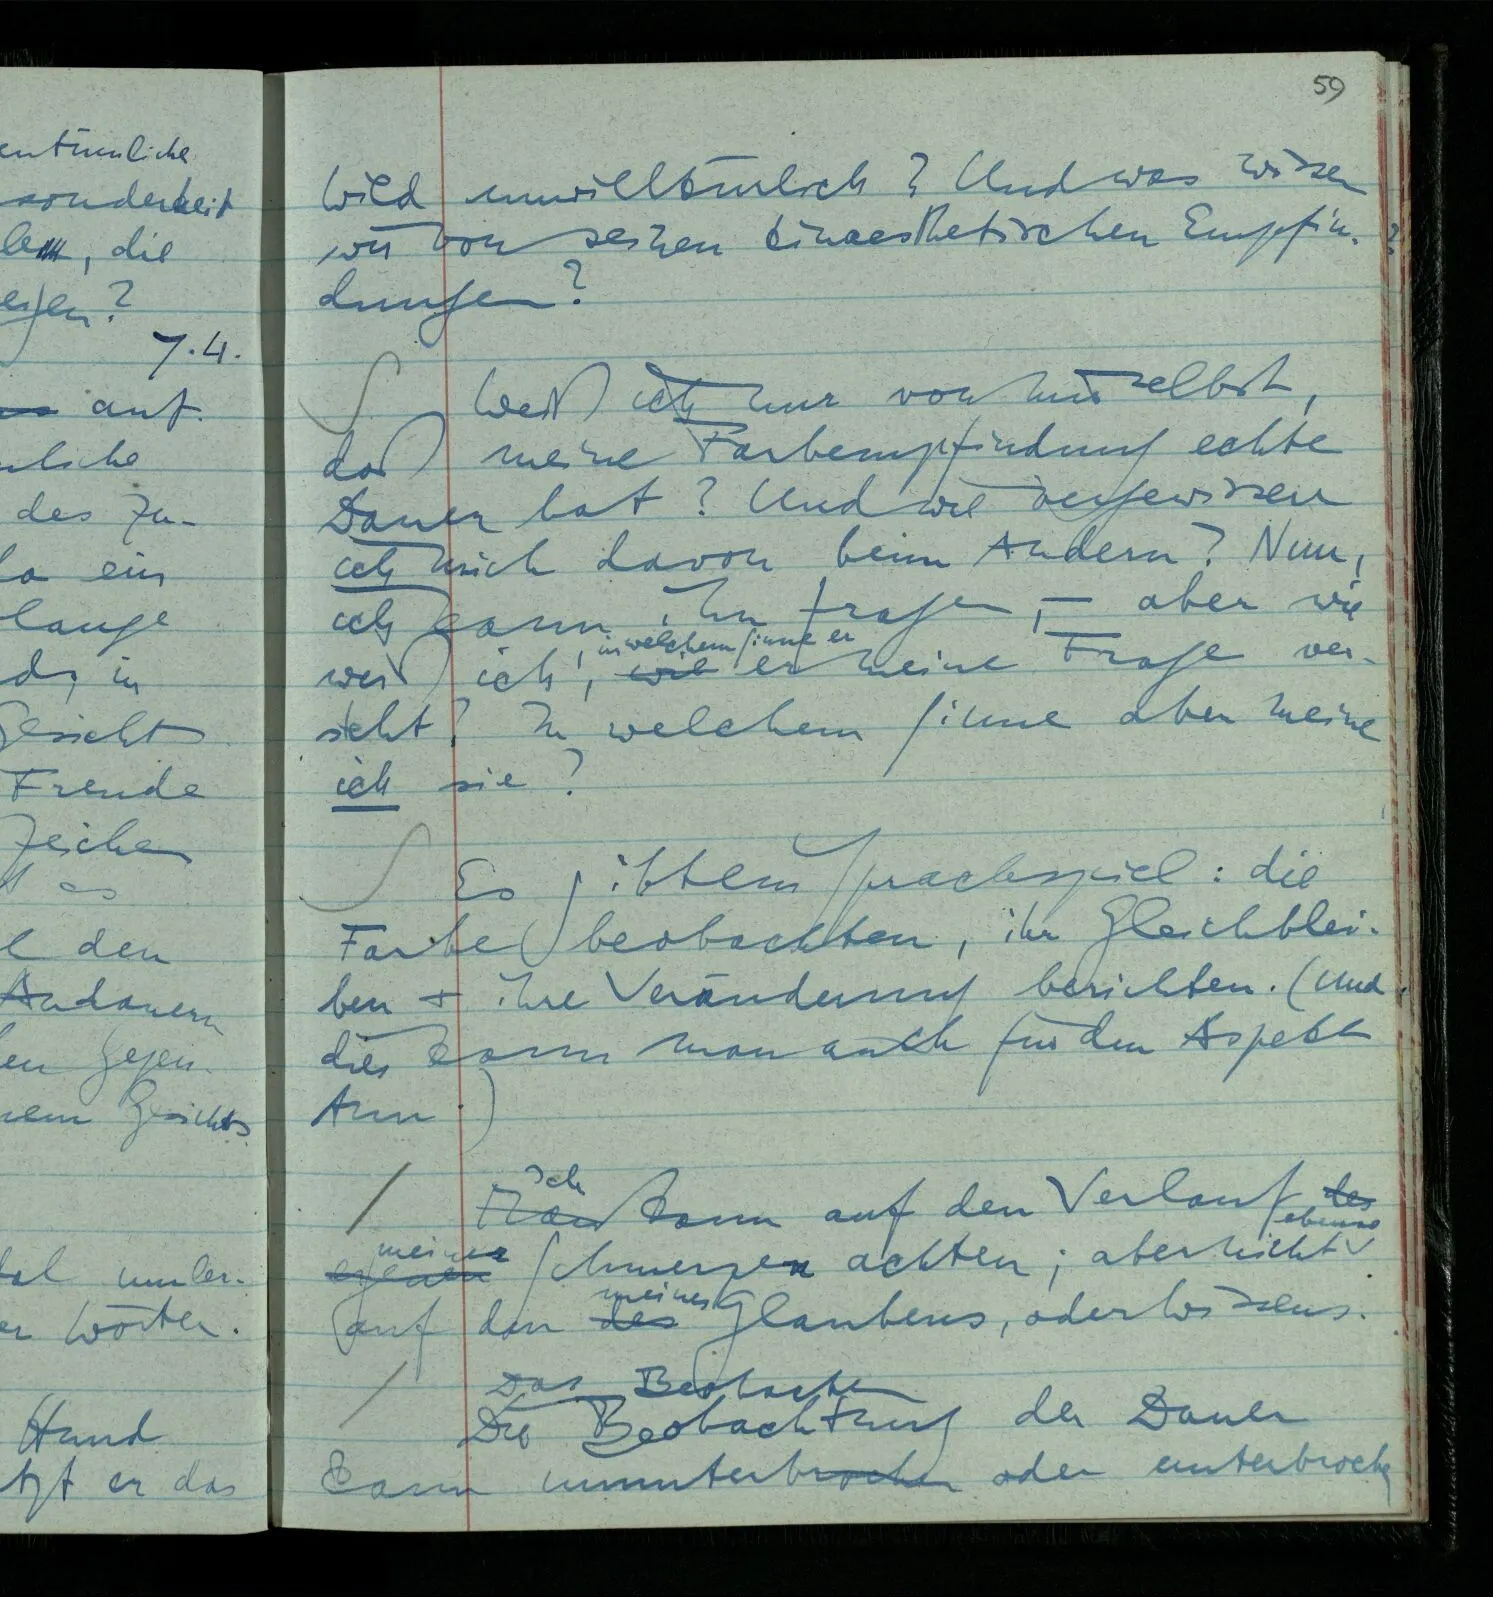 entümliche
sonderheit
le, die
eigen?
7.4.
auf.
nliche
des Zu-
da ein
lange
in
Gesicht
Freude
Zeichen
es
den
Andauern
en Gegen-
nem Gesichts
al unter-
er Wörter.
Hand
tzt er das
59
Wild unwillkürlich? Und was wissen
wir von seinen kinaesthetischen Empfin-
dungen?
?
Weiß ich nur von mir selbst,
daß meine Farbempfindung echte
Dauer hat? Und wie vergewissere
ich mich davon beim Andern? Nun,
ich kann ihn fragen, – aber wie
in welchem Sinne er
weiß ich, wie er meine Frage ver-
steht? In welchem Sinne aber meine
ich sie?
Es gibt ein Sprachspiel: die
Farbe beobachten, ihr Gleichblei-
ben + ihre Veränderung berichten. (Und
dies kann man auch für den Aspekt
tun)
Ich
Man kann auf den Verlauf des
meiner ebenso
eigenen Schmerzen achten; aber nicht
meines
auf den des Glaubens, oder Wissens.
Das Beobachten
Die Beobachtung der Dauer
kann ununterbrochen oder unterbrochen